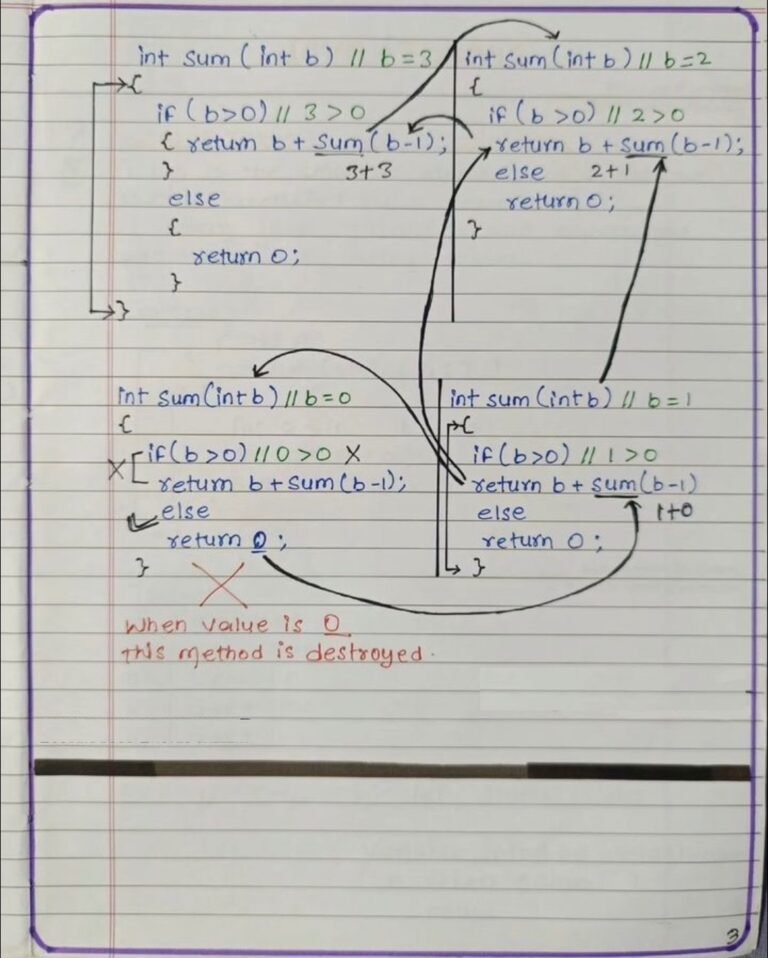 int sum (int b) // b=3
{
if (b>0) // 3>0
{ return b + sum (b-1);
3+3
}
else
{
return 0;
}
}
int sum (int b) // b=2
{
if (b >0) // 2>0
return b + sum (b-1);
else 2+1
return 0;
}
int sum (int b) // b=0
{
if (b >0) // 0>0 X
X [ return b + sum (b-1);
else
return 0;
}
When value is 0
this method is destroyed.
int sum (int b) // b=1
{
if (b>0) // 1>0
return b + sum (b-1)
else 1+0
return 0;
}
3